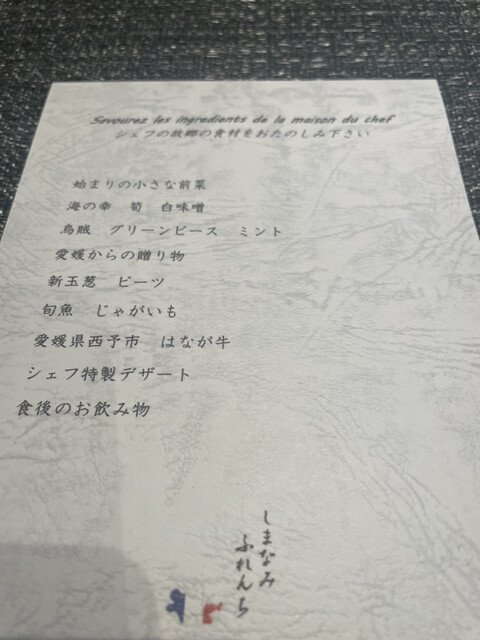 Savourez les ingredients de la maison du chef
シェフの故郷の食材をおたのしみ下さい
始まりの小さな前菜
海の幸　筍　白味噌
烏賊　グリーンピース　ミント
愛媛からの贈り物
新玉葱　ビーツ
旬魚　じゃがいも
愛媛県西予市　はなが牛
シェフ特製デザート
食後のお飲み物
しまなみ
ふれんち